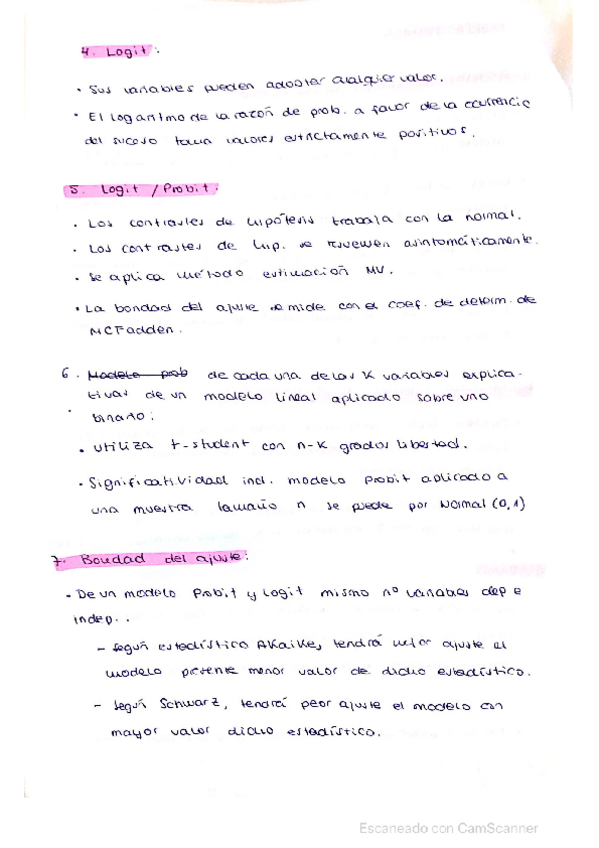 4. Logit:
· Sus variables pueden adoptar cualquier valor.
· El logaritmo de la razón de prob. a favor de la ocurrencia
del suceso toma valores estrictamente positivos.
5. Logit / Probit:
· Los contrastes de hipótesis trabaja con la normal.
· Los contrastes de hip. se resuelven asintomáticamente.
· Se aplica método estimación MV.
· La bondad del ajuste se mide con el coef. de determ. de
MCFadden.
6. Modelo prob de cada una de las K variables explica-
tivas de un modelo lineal aplicado sobre uno
binario:
· Utiliza t-student con n-K grados libertad.
· Significatividad ind. modelo Probit aplicado a
una muestra tamaño n se puede por Normal (0,1)
7. Bondad del ajuste:
- De un modelo Probit y Logit mismo nº variables dep e
indep..
- Según estadístico Akaike, tendrá mejor ajuste el
modelo presente menor valor de dicho estadístico.
- Según Schwarz, tendrá peor ajuste el modelo con
mayor valor dicho estadístico.
Escaneado con CamScanner